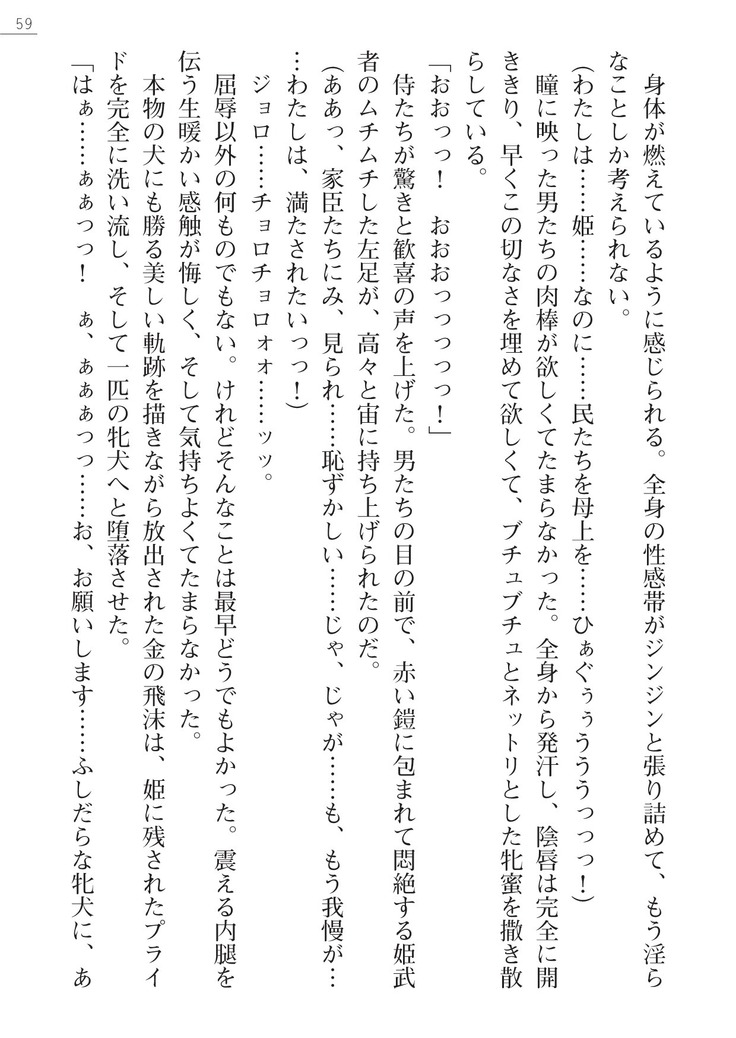 59
身体が燃えているように感じられる。全身の性感帯がジンジンと張り詰めて、もう淫ら
なことしか考えられない。
（わたしは……姫……なのに……民たちを母上を……ひぁぐぅぅうううっっっ！）
瞳に映った男たちの肉棒が欲しくてたまらなかった。全身から発汗し、陰唇は完全に開
ききり、早くこの切なさを埋めて欲しくて、ブチュブチュとネットリとした牝蜜を撒き散
らしている。
「おおっっ！　おおおっっっっっ！」
侍たちが驚きと歓喜の声を上げた。男たちの目の前で、赤い鎧に包まれて悶絶する姫武
者のムチムチした左足が、高々と宙に持ち上げられたのだ。
（ああっ、家臣たちにみ、見られ……恥ずかしい……じゃ、じゃが……も、もう我慢が…
…わたしは、満たされたいっっ！）
ジョロ……チョロチョロォォ……ッッ。
屈辱以外の何ものでもない。けれどそんなことは最早どうでもよかった。震える内腿を
伝う生暖かい感触が悔しく、そして気持ちよくてたまらなかった。
本物の犬にも勝る美しい軌跡を描きながら放出された金の飛沫は、姫に残されたプライ
ドを完全に洗い流し、そして一匹の牝犬へと堕落させた。
「はぁ……ぁぁっっ！　ぁ、ぁぁぁっっ……お、お願いします……ふしだらな牝犬に、あ